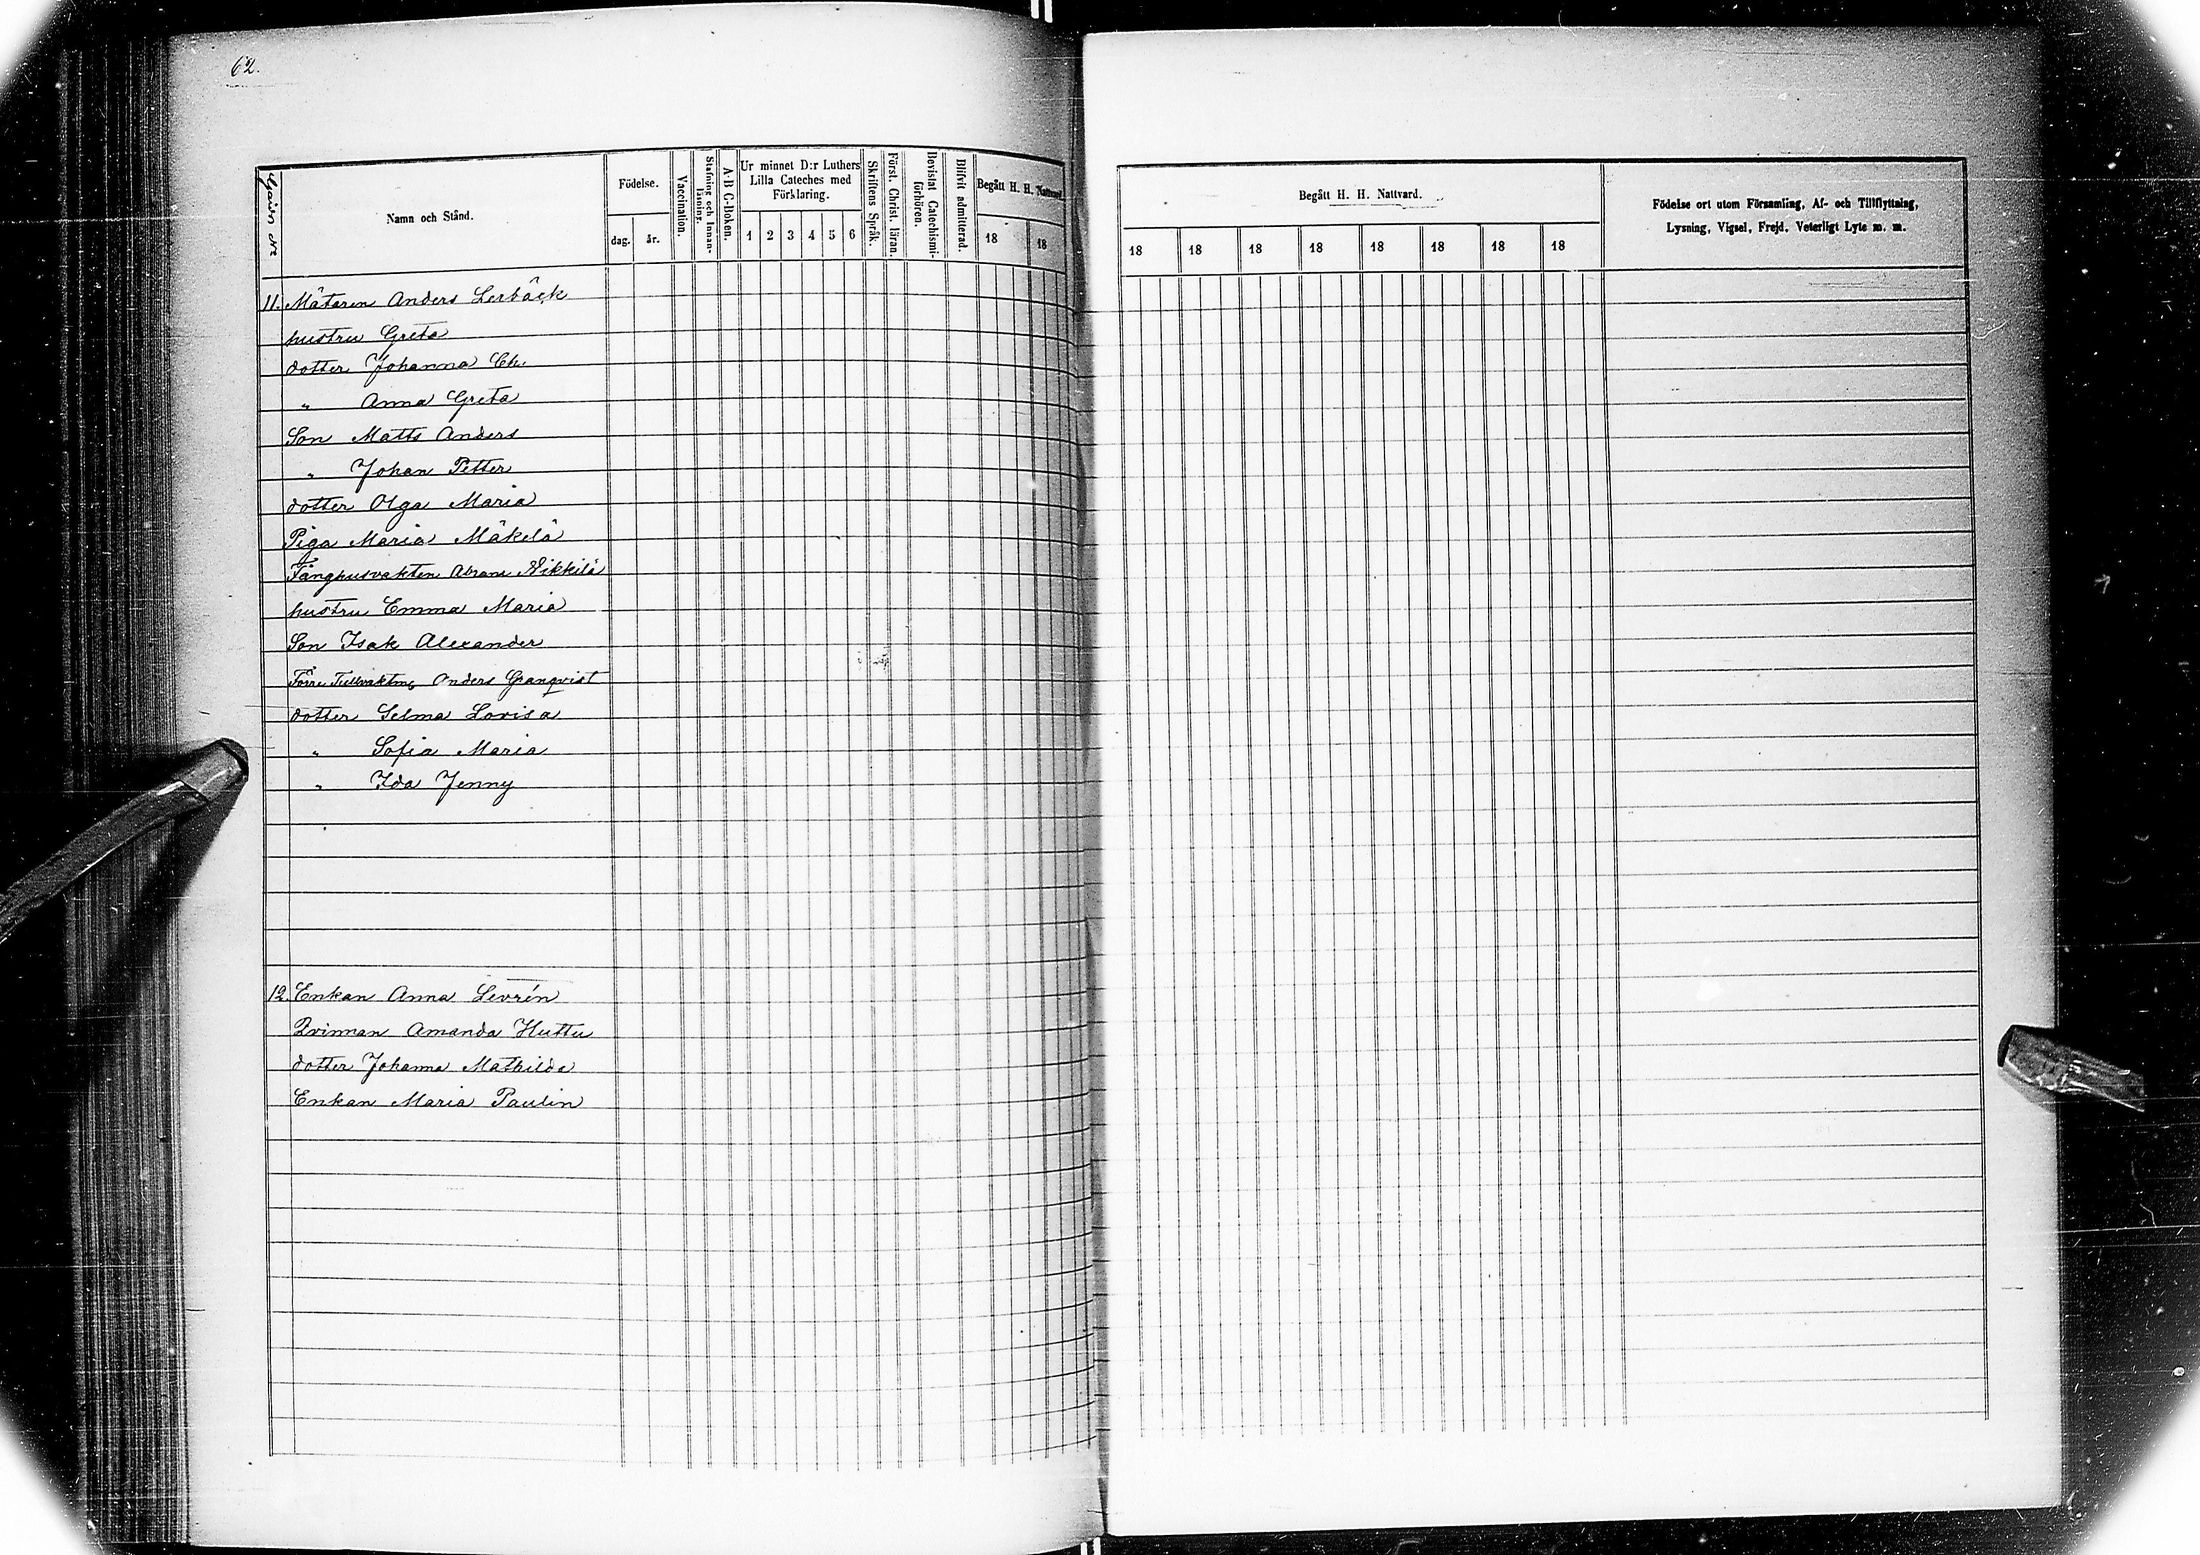 62.
Gård No
Namn och Stånd.
Födelse.
dag.
år.
Vaccination.
Stafning och Innan-
läsning.
A-B C-Boken.
Ur minnet D:r Luthers
Lilla Cateches med
Förklaring.
1 2 3 4 5 6
Skriftens Språk.
Först. Christ. läran.
Bevistat Catechismi-
förhören.
Blifvit admitterad.
Begått H. H. Nattvard
18 18
11. Mätaren Anders Lerbäck
hustru Greta
dotter Johanna Ch.
" Anna Greta
Son Matts Anders
" Johan Petter
dotter Olga Maria
Piga Maria Mäkelä
Fånghusvakten Abram Nikkilä
hustru Emma Maria
Son Isak Alexander
Förre Tullvaktm. Anders Granqvist
dotter Selma Lovisa
" Sofia Maria
" Ida Jenny
12. Enkan Anna Levrén
Qvinnan Amanda Huttu
dotter Johanna Mathilda
Enkan Maria Paulin
Begått H. H. Nattvard.
18 18 18 18 18 18 18 18
Födelse ort utom Församling, Af- och Tillflyttning,
Lysning, Vigsel, Frejd, Veterligt Lyte m. m.